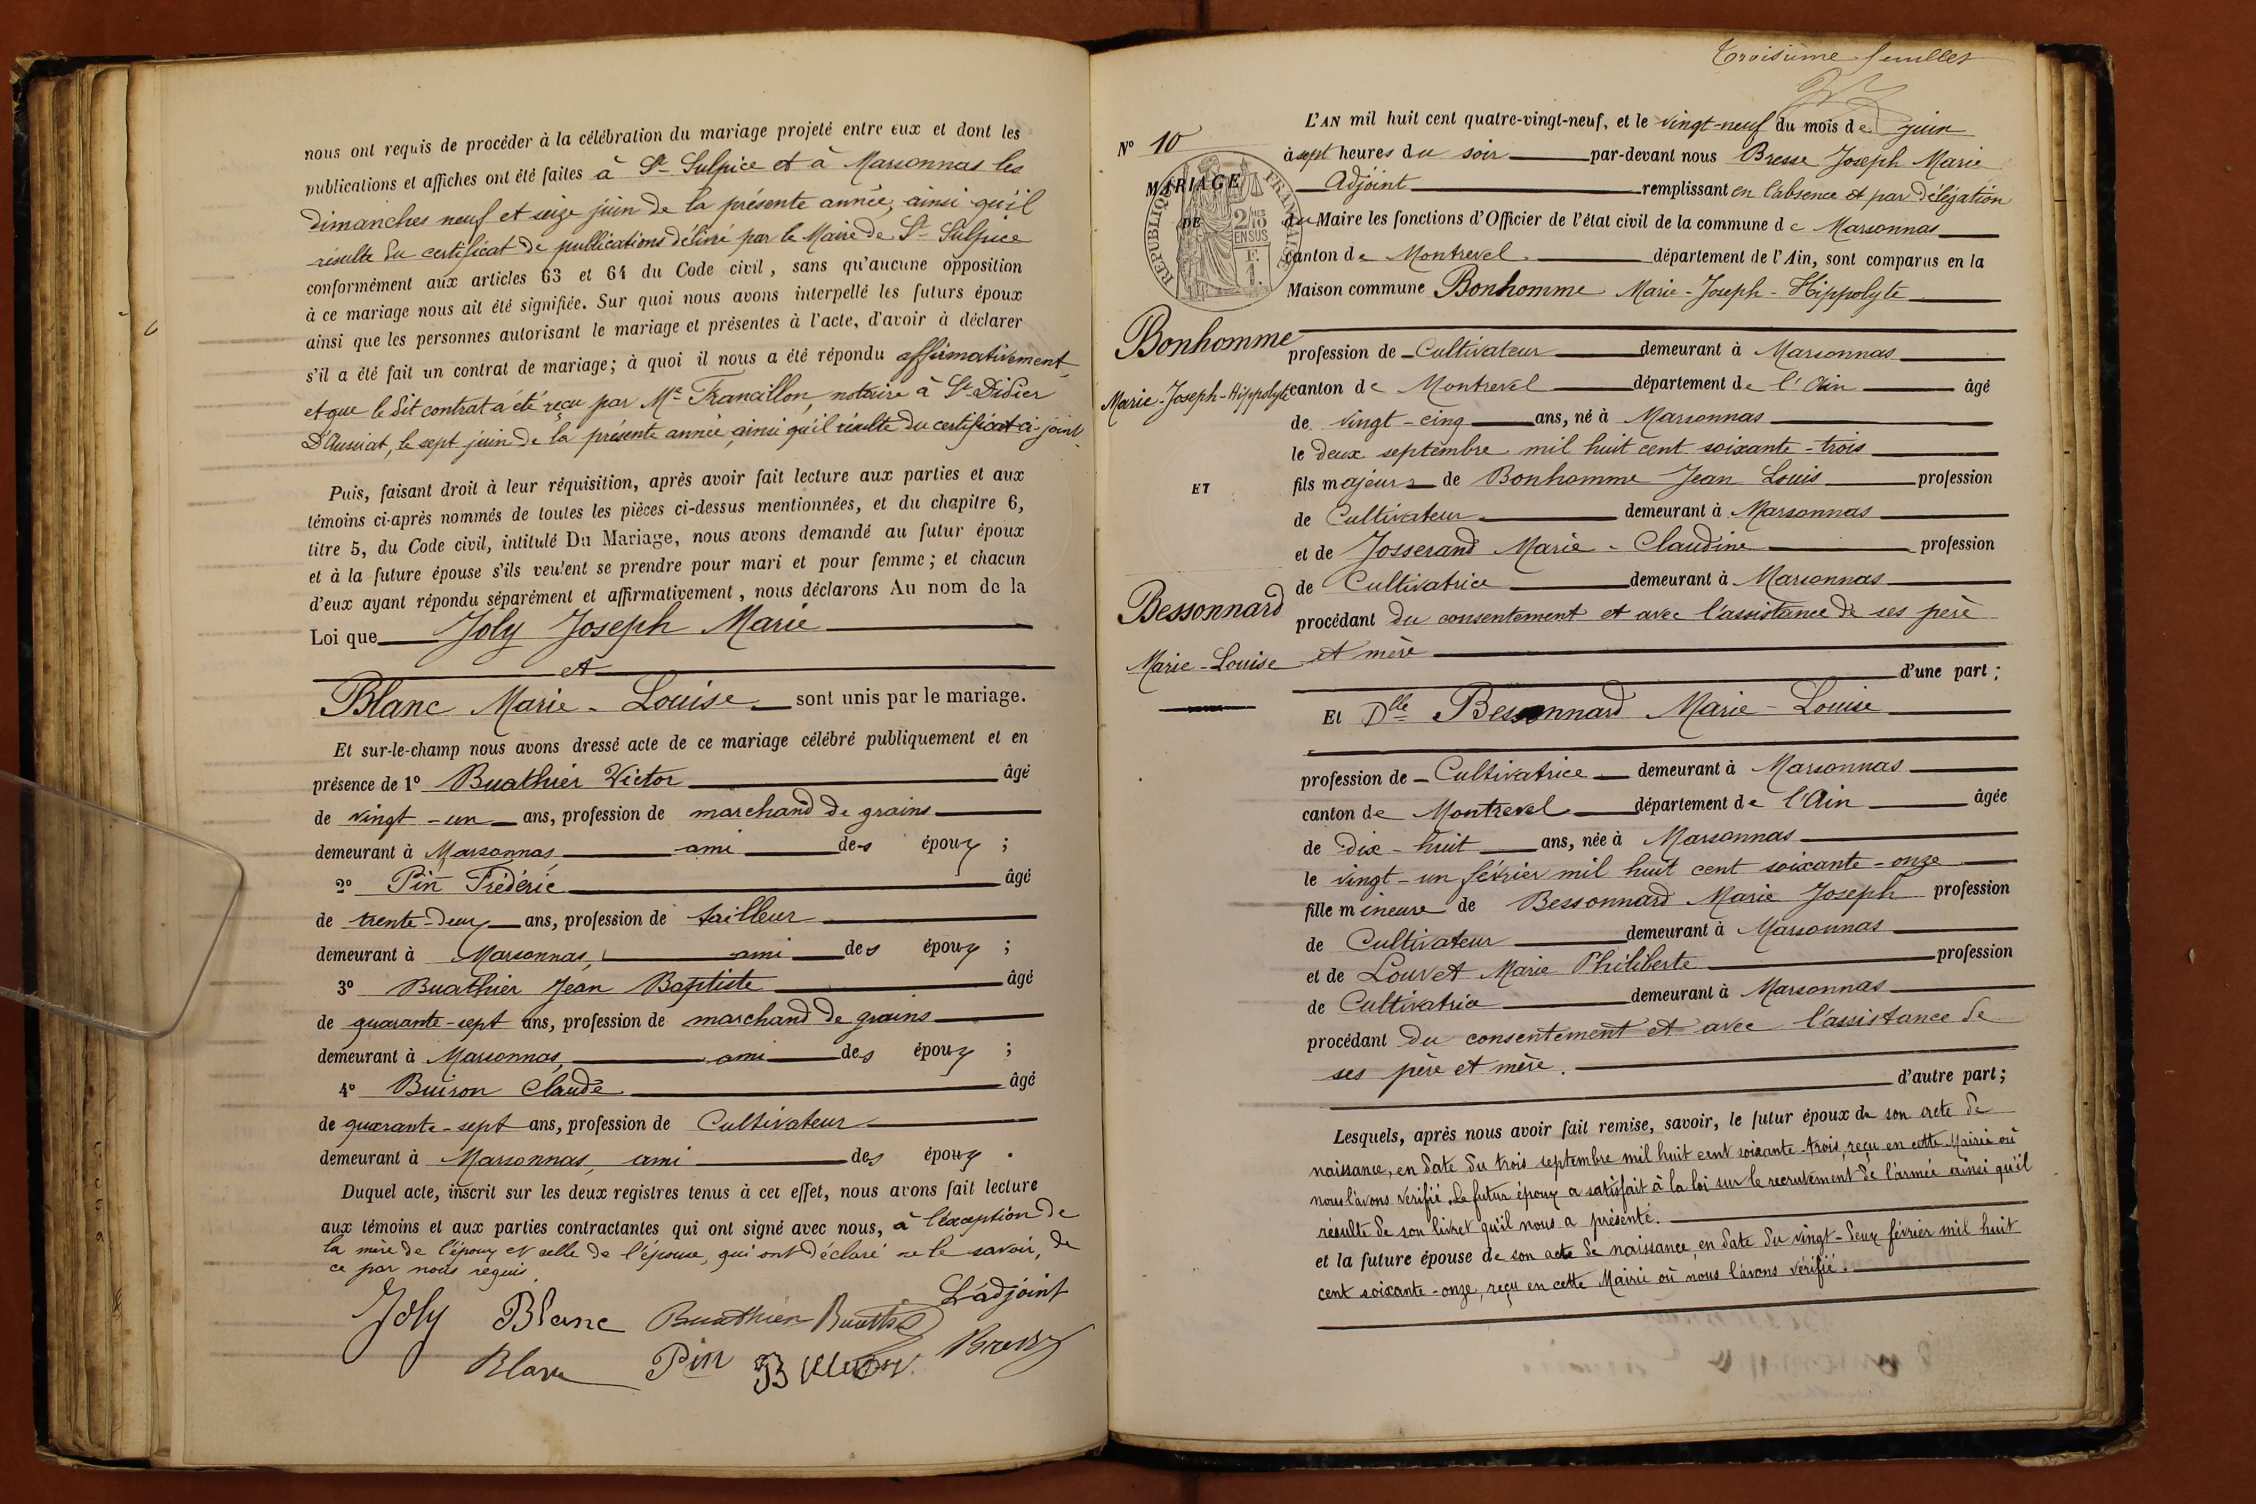 nous ont requis de procéder à la célébration du mariage projeté entre eux et dont les
publications et affiches ont été faites à St Sulpice et à Marsonnas les
dimanches neuf et seize juin de la présente année, ainsi qu'il
résulte du certificat de publications délivré par le Maire de St Sulpice
conformément aux articles 63 et 64 du Code civil, sans qu'aucune opposition
à ce mariage nous ait été signifiée. Sur quoi nous avons interpellé les futurs époux
ainsi que les personnes autorisant le mariage et présentes à l'acte, d'avoir à déclarer
s'il a été fait un contrat de mariage; à quoi il nous a été répondu affirmativement
et que le dit contrat a été reçu par Me Francillon, notaire à St Didier
d'Aussiat, le sept juin de la présente année, ainsi qu'il résulte du certificat ci-joint
Puis, faisant droit à leur réquisition, après avoir fait lecture aux parties et aux
témoins ci-après nommés de toutes les pièces ci-dessus mentionnées, et du chapitre 6,
titre 5, du Code civil, intitulé Du Mariage, nous avons demandé au futur époux
et à la future épouse s'ils veulent se prendre pour mari et pour femme; et chacun
d'eux ayant répondu séparément et affirmativement, nous déclarons Au nom de la
Loi que Joly Joseph Marie
et
Blanc Marie-Louise sont unis par le mariage.
Et sur-le-champ nous avons dressé acte de ce mariage célébré publiquement et en
présence de 1° Buathier Victor âgé
de vingt-un ans, profession de marchand de grains
demeurant à Marsonnas, ami des époux ;
2° Pin Frédéric âgé
de trente-deux ans, profession de tailleur
demeurant à Marsonnas, ami des époux ;
3° Buathier Jean Baptiste âgé
de quarante-sept ans, profession de marchand de grains
demeurant à Marsonnas, ami des époux ;
4° Buiron Claude âgé
de quarante-sept ans, profession de Cultivateur
demeurant à Marsonnas, ami des époux .
Duquel acte, inscrit sur les deux registres tenus à cet effet, nous avons fait lecture
aux témoins et aux parties contractantes qui ont signé avec nous, à l'éxception de
la mère de l'époux et celle de l'épouse, qui ont déclaré ne le savoir, de
ce par nous requis
L'adjoint
Joly Blanc Buathier Buathier
Blanc Pin Buiron Bresse
Troisième feuillet
N° 10
MARIAGE
DE
RÉPUBLIQUE FRANÇAISE
2/10 EN SUS
F. 1.
Bonhomme
Marie-Joseph-Hippolyte
ET
Bessonnard
Marie-Louise
L'AN mil huit cent quatre-vingt-neuf, et le vingt-neuf du mois de juin
à sept heures du soir par-devant nous Bresse Joseph Marie
Adjoint remplissant en l'absence et par délégation
du Maire les fonctions d'Officier de l'état civil de la commune de Marsonnas
canton de Montrevel département de l'Ain, sont comparus en la
Maison commune Bonhomme Marie-Joseph-Hippolyte
profession de Cultivateur demeurant à Marsonnas
canton de Montrevel département de l'Ain âgé
de vingt-cinq ans, né à Marsonnas
le deux septembre mil huit cent soixante-trois
fils majeur de Bonhomme Jean Louis profession
de Cultivateur demeurant à Marsonnas
et de Josserand Marie-Claudine profession
de Cultivatrice demeurant à Marsonnas
procédant du consentement et avec l'assistance de ses père
et mère
d'une part ;
Et Dlle Bessonnard Marie-Louise
profession de Cultivatrice demeurant à Marsonnas
canton de Montrevel département de l'Ain âgée
de dix-huit ans, née à Marsonnas
le vingt-un février mil huit cent soixante-onze
fille mineure de Bessonnard Marie Joseph profession
de Cultivateur demeurant à Marsonnas
et de Louvet Marie Philiberte profession
de Cultivatrice demeurant à Marsonnas
procédant du consentement et avec l'assistance de
ses père et mère.
d'autre part ;
Lesquels, après nous avoir fait remise, savoir, le futur époux de son acte de
naissance, en date du trois septembre mil huit cent soixante-trois, reçu en cette Mairie où
nous l'avons vérifié. Le futur époux a satisfait à la loi sur le recrutement de l'armée ainsi qu'il
résulte de son livret qu'il nous a présenté.
et la future épouse de son acte de naissance, en date du vingt-deux février mil huit
cent soixante-onze, reçu en cette Mairie où nous l'avons vérifié.